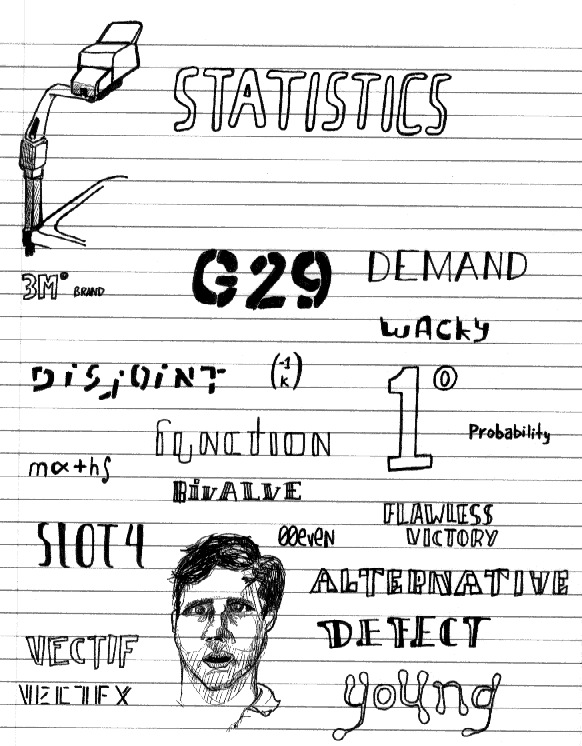 STATISTICS
G29
DEMAND
3M® BRAND
WACKY
DiSjOiNT
(-1 K)
1°
FUNCTION
Probability
maths
BiVALVE
FLAWLESS
VICTORY
SLOT4
ALTERNATIVE
DEFECT
VECTIF
VECTFX
young